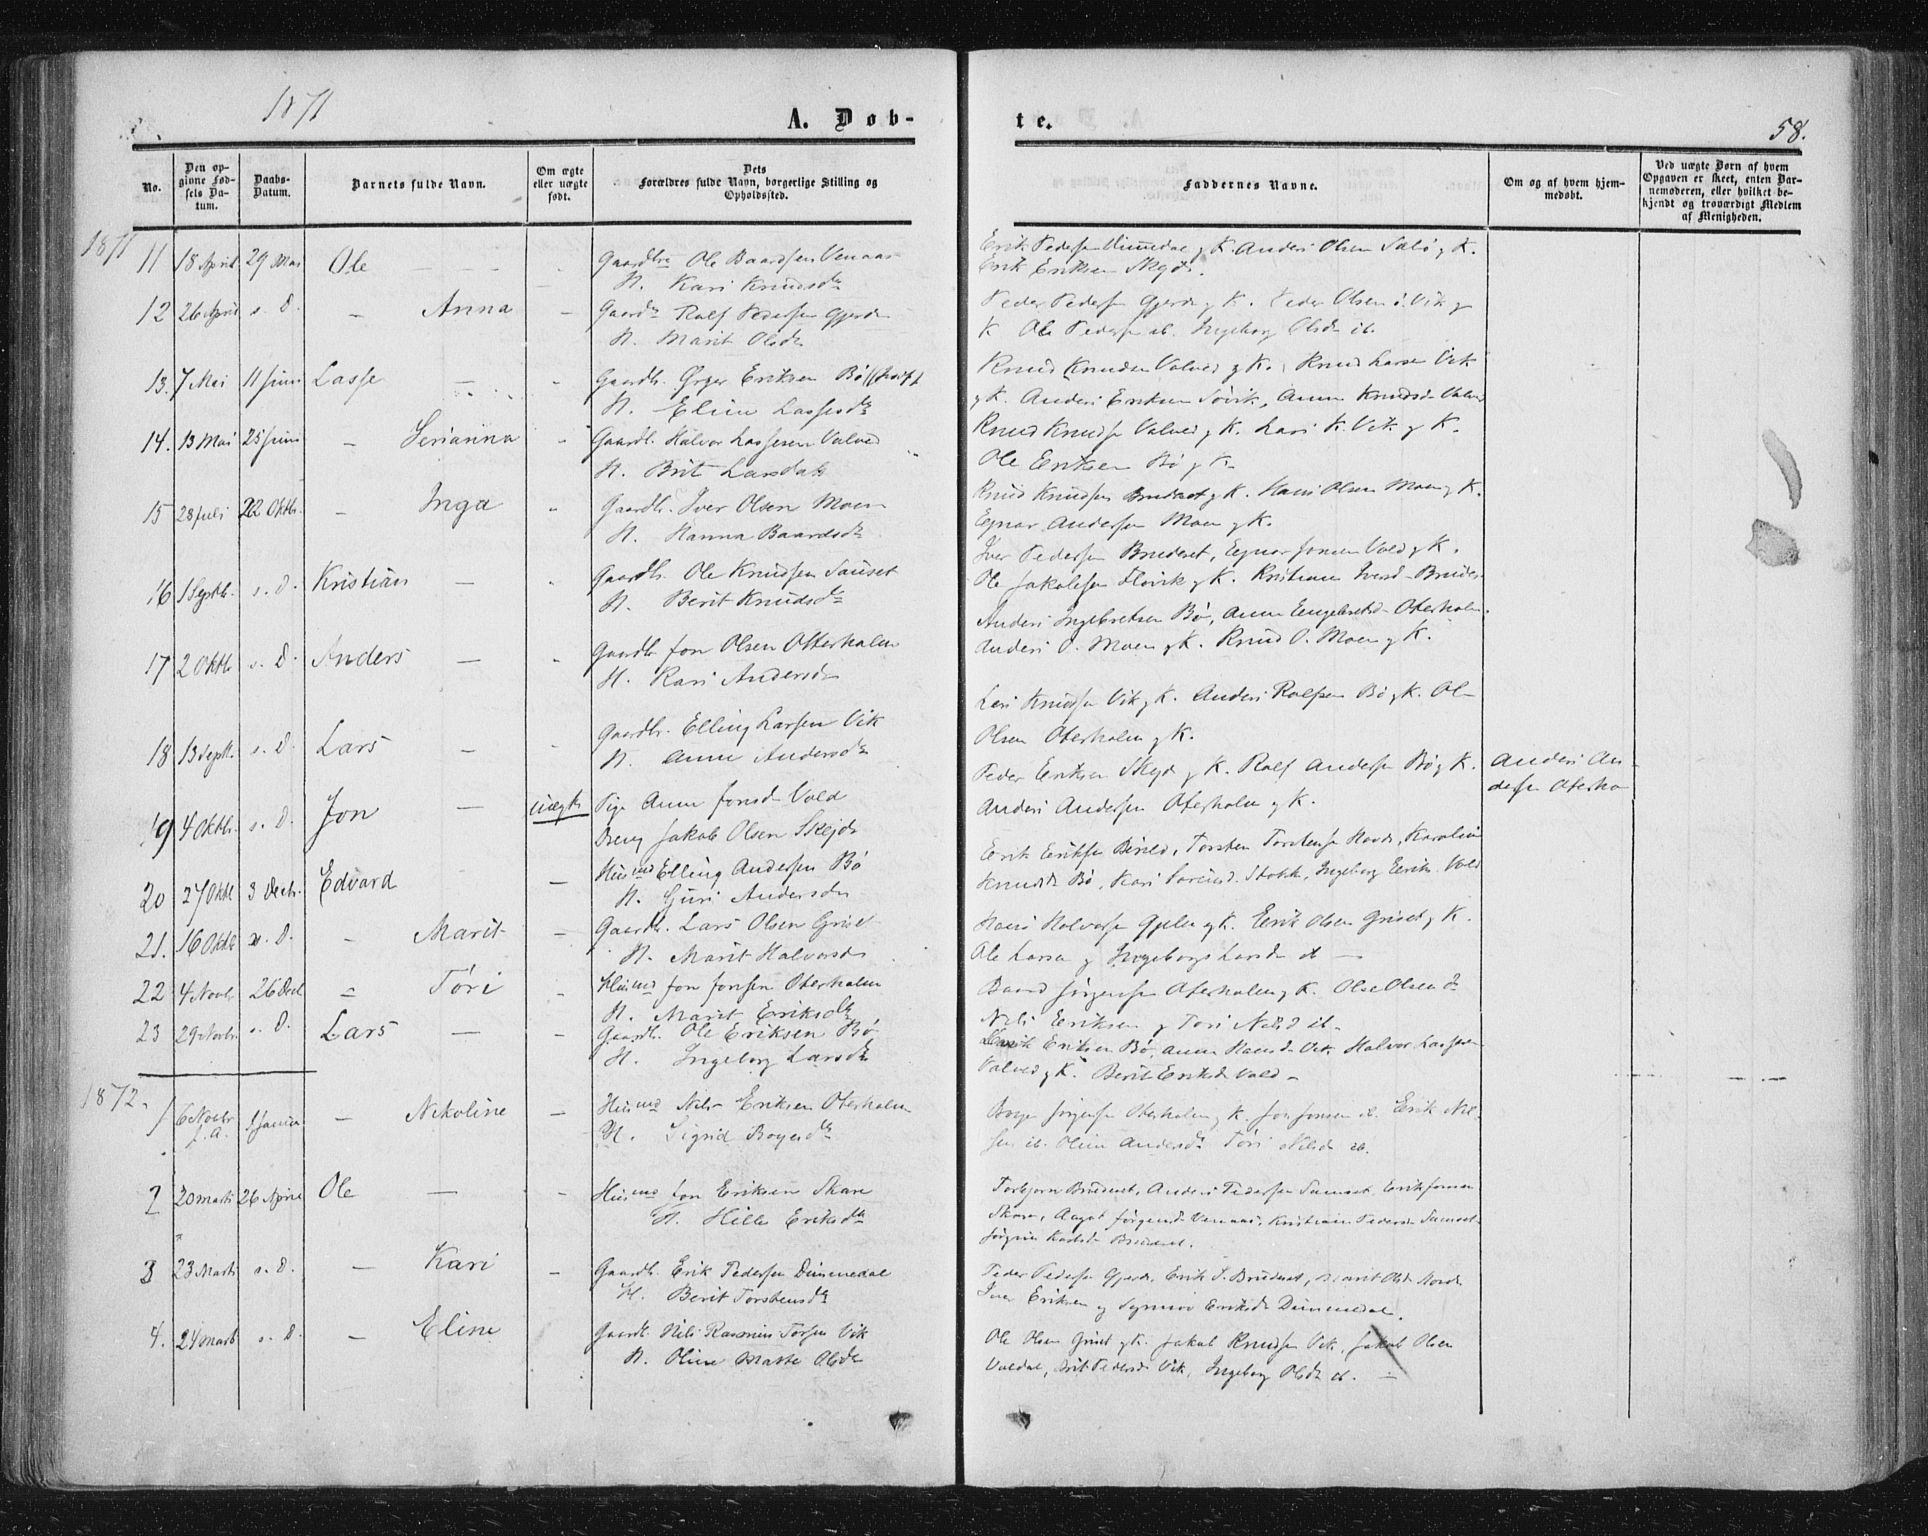 1871
A. Døb-
te.
58.
No.
Den op-
givne Fød-
sels Da-
tum.
Daabs-
Datum.
Barnets fulde Navn.
Om ægte
eller uægte
født.
Dets
Forældres fulde Navn, borgerlige Stilling og
Opholdssted.
Faddernes Navne.
Om og af hvem hjem-
medøbt.
Ved uægte Børn af hvem
Opgaven er skeet, enten Bar-
nemoderen, eller hvilket be-
kjendt og troværdigt Medlem
af Menigheden.
1871
11 18 April 29 Mai Ole — Gaardbr. Ole Baardsen Venaas
H. Kari Knudsdtr
Erik Pedersen y K. Anders Olsen y K.
Erik Eriksen Skejde.
12 26 April s. D. — Anna — Gaardbr Rolf Pedersen Gjerde
H. Marit Olsdtr
Peder Pedersen Gjerde y K. Peder Olsen i Vik y
K. Ole Pedersen ib. Ingeborg Olsdtr ib.
13. 7 Mai 11 Juni Lasse — Gaardbr. Eriksen Bø
H. Eline Lassesdtr
Knud Knudsen Valved y K. Knud Larsen Vik
y K. Anders Eriksen Søvik, Anne Knudsd Valved
14. 13 Mai 25 Juni — Serianna — Gaardbr. Halvor Lassesen Valved
H. Brit Larsdatr
Knud Knudsen Valved y K. Lars K. Vik y K.
Ole Eriksen Bø y K.
15 28 Juli 22 Oktbr. — Inga — Gaardbr. Iver Olsen Moen
H. Hanna Baardsdtr
Knud Knudsen Bruděset y K. Hans Olsen Moen y K.
Egnar Andersen Moen y K.
16 1 Septbr. s. D. Kristian — Gaardbr. Ole Knudsen
H. Berit Knudsdtr
Iver Pedersen Brudeset, Egnar Jonsen Vold y K.
Ole Jakobsen y K. Kristiane Iversd. Brudes
17 2 Oktbr s. D. Anders — Gaardbr Jon Olsen Otterholm
H. Kari Andersdtr
Anders Ingebretsen Bø, Anne Engebretsd. Oterholm.
Anders O. Moen y K. Knud O. Moen y K.
18 13 Septbr. s. D. Lars — Gaardbr. Elling Larsen Vik
H. Anne Andersdtr
Lars Knudsen Vik y K. Anders Rolfsen Bø y K. Ole
Olsen Oterholm y K.
19 4 Oktbr. s. D. Jon — uægte Pige Anne Jonsdtr Vold
Dreng Jakob Olsen Skejde
Peder Eriksen Skejde y K. Rolf Andersen Bø y K.
Anders Andersen Oterholm y K.
Anders An-
dersen Oterho
20 27 Oktbr 3 Decbr. Edvard — Husmd Elling Andersen Bø
H. Guri Andersdtr
Erik Eriksen Torsten Torstensen Karoline
Knudsdtr Bø, Kari Ingeborg Eriksd. Vold
21. 16 Oktbr s. D. — Marit — Gaardbr. Lars Olsen Griset
H. Marit Halvorsdtr
Hans Halvorsen y K. Erik Olsen Griset y K.
Ole Larsen y Ingeborg Larsdtr ib —
22 4 Novbr 26 Dec — Tøri — Husmd Jon Jonsen Oterholm
H. Marit Eriksdtr
Baard Jørgensen Oterholm y K. Ole Olsen
Nils Eriksen y Tøri Nilsd ib.
23 29 Novbr. s. D. Lars — Gaardbr. Ole Eriksen Bø
H. Ingeborg Larsdtr
Eriksen Bø, Anne Hansd. Vik. Halvor Lassesen
Valved y K. Berit Eriksdtr Vold —
1872.
1 6 Novbr
f. A.
1 Januar — Nikoline — Husmd Nils Eriksen Oterholm
H. Sigrid Boyesdtr
Boye Jørgensen Oterholm y K. Jon Jonsen ib. Erik Nil-
sen ib. Oline Andersdtr Tøri Nilsd ib.
2 20 Marts 26 April Ole — Husmd Jon Eriksen Skare
H. Hille Eriksdtr
Torbjørn Brudeset, Anders Pedersen Erik Jonsen
Skare, Aagot Jørgensd. Venaas, Kristiane Pedersd.
Brudeset.
3 23 Marts s. D. — Kari — Gaardbr. Erik Pedersen Dimmedal
H. Berit Torstensdtr
Peder Pedersen Gjerde, Erik I. Brudeset, Marit Olsd.
Iver Eriksen y Synnøv Eriksd Dimmedal.
4. 24 Marts s. D. — Eline Gaardbr. Nils Rasmus Torsen Vik
H. Oline Marte Olsdtr
Ole Olsen Griset y K. Jakob Knudsen Vik, Jakob Olsen
Brit Pedersd Vik, Ingeborg Olsdtr ib. —